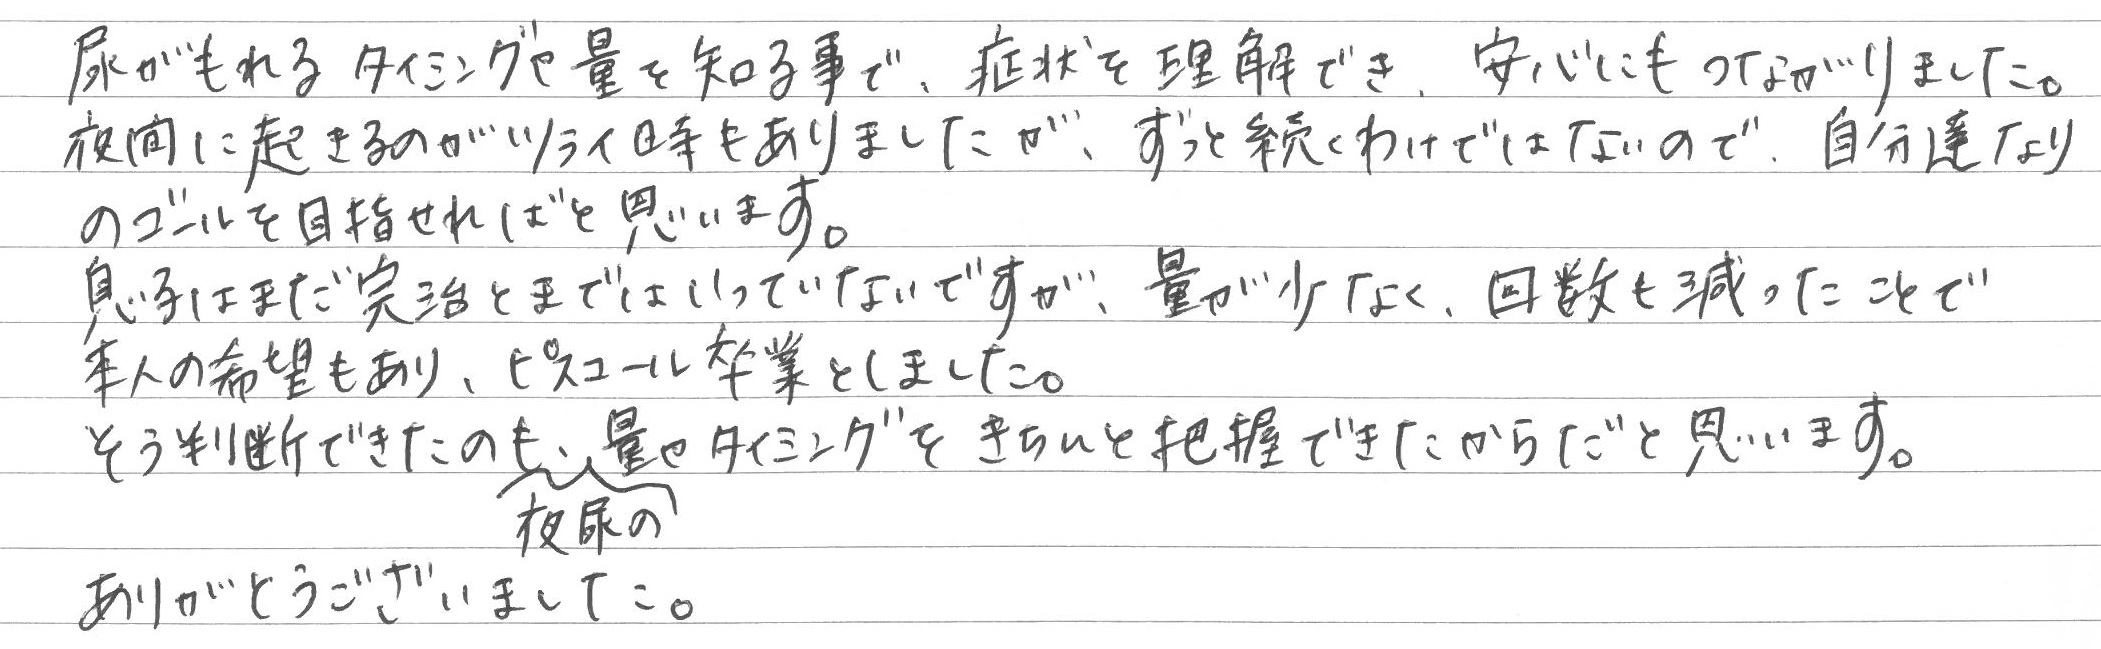 尿がもれるタイミングや量を知る事で、症状を理解でき、安心にもつながりました。
夜間に起きるのがツライ時もありましたが、ずっと続くわけではないので、自分達なり
のゴールを目指せればと思います。
息子はまだ完治とまではいっていないですが、量が少なく、回数も減ったことで
本人の希望もあり、ピスコール卒業としました。
そう判断できたのも、量やタイミングをきちんと把握できたからだと思います。
夜尿の
ありがとうございました。